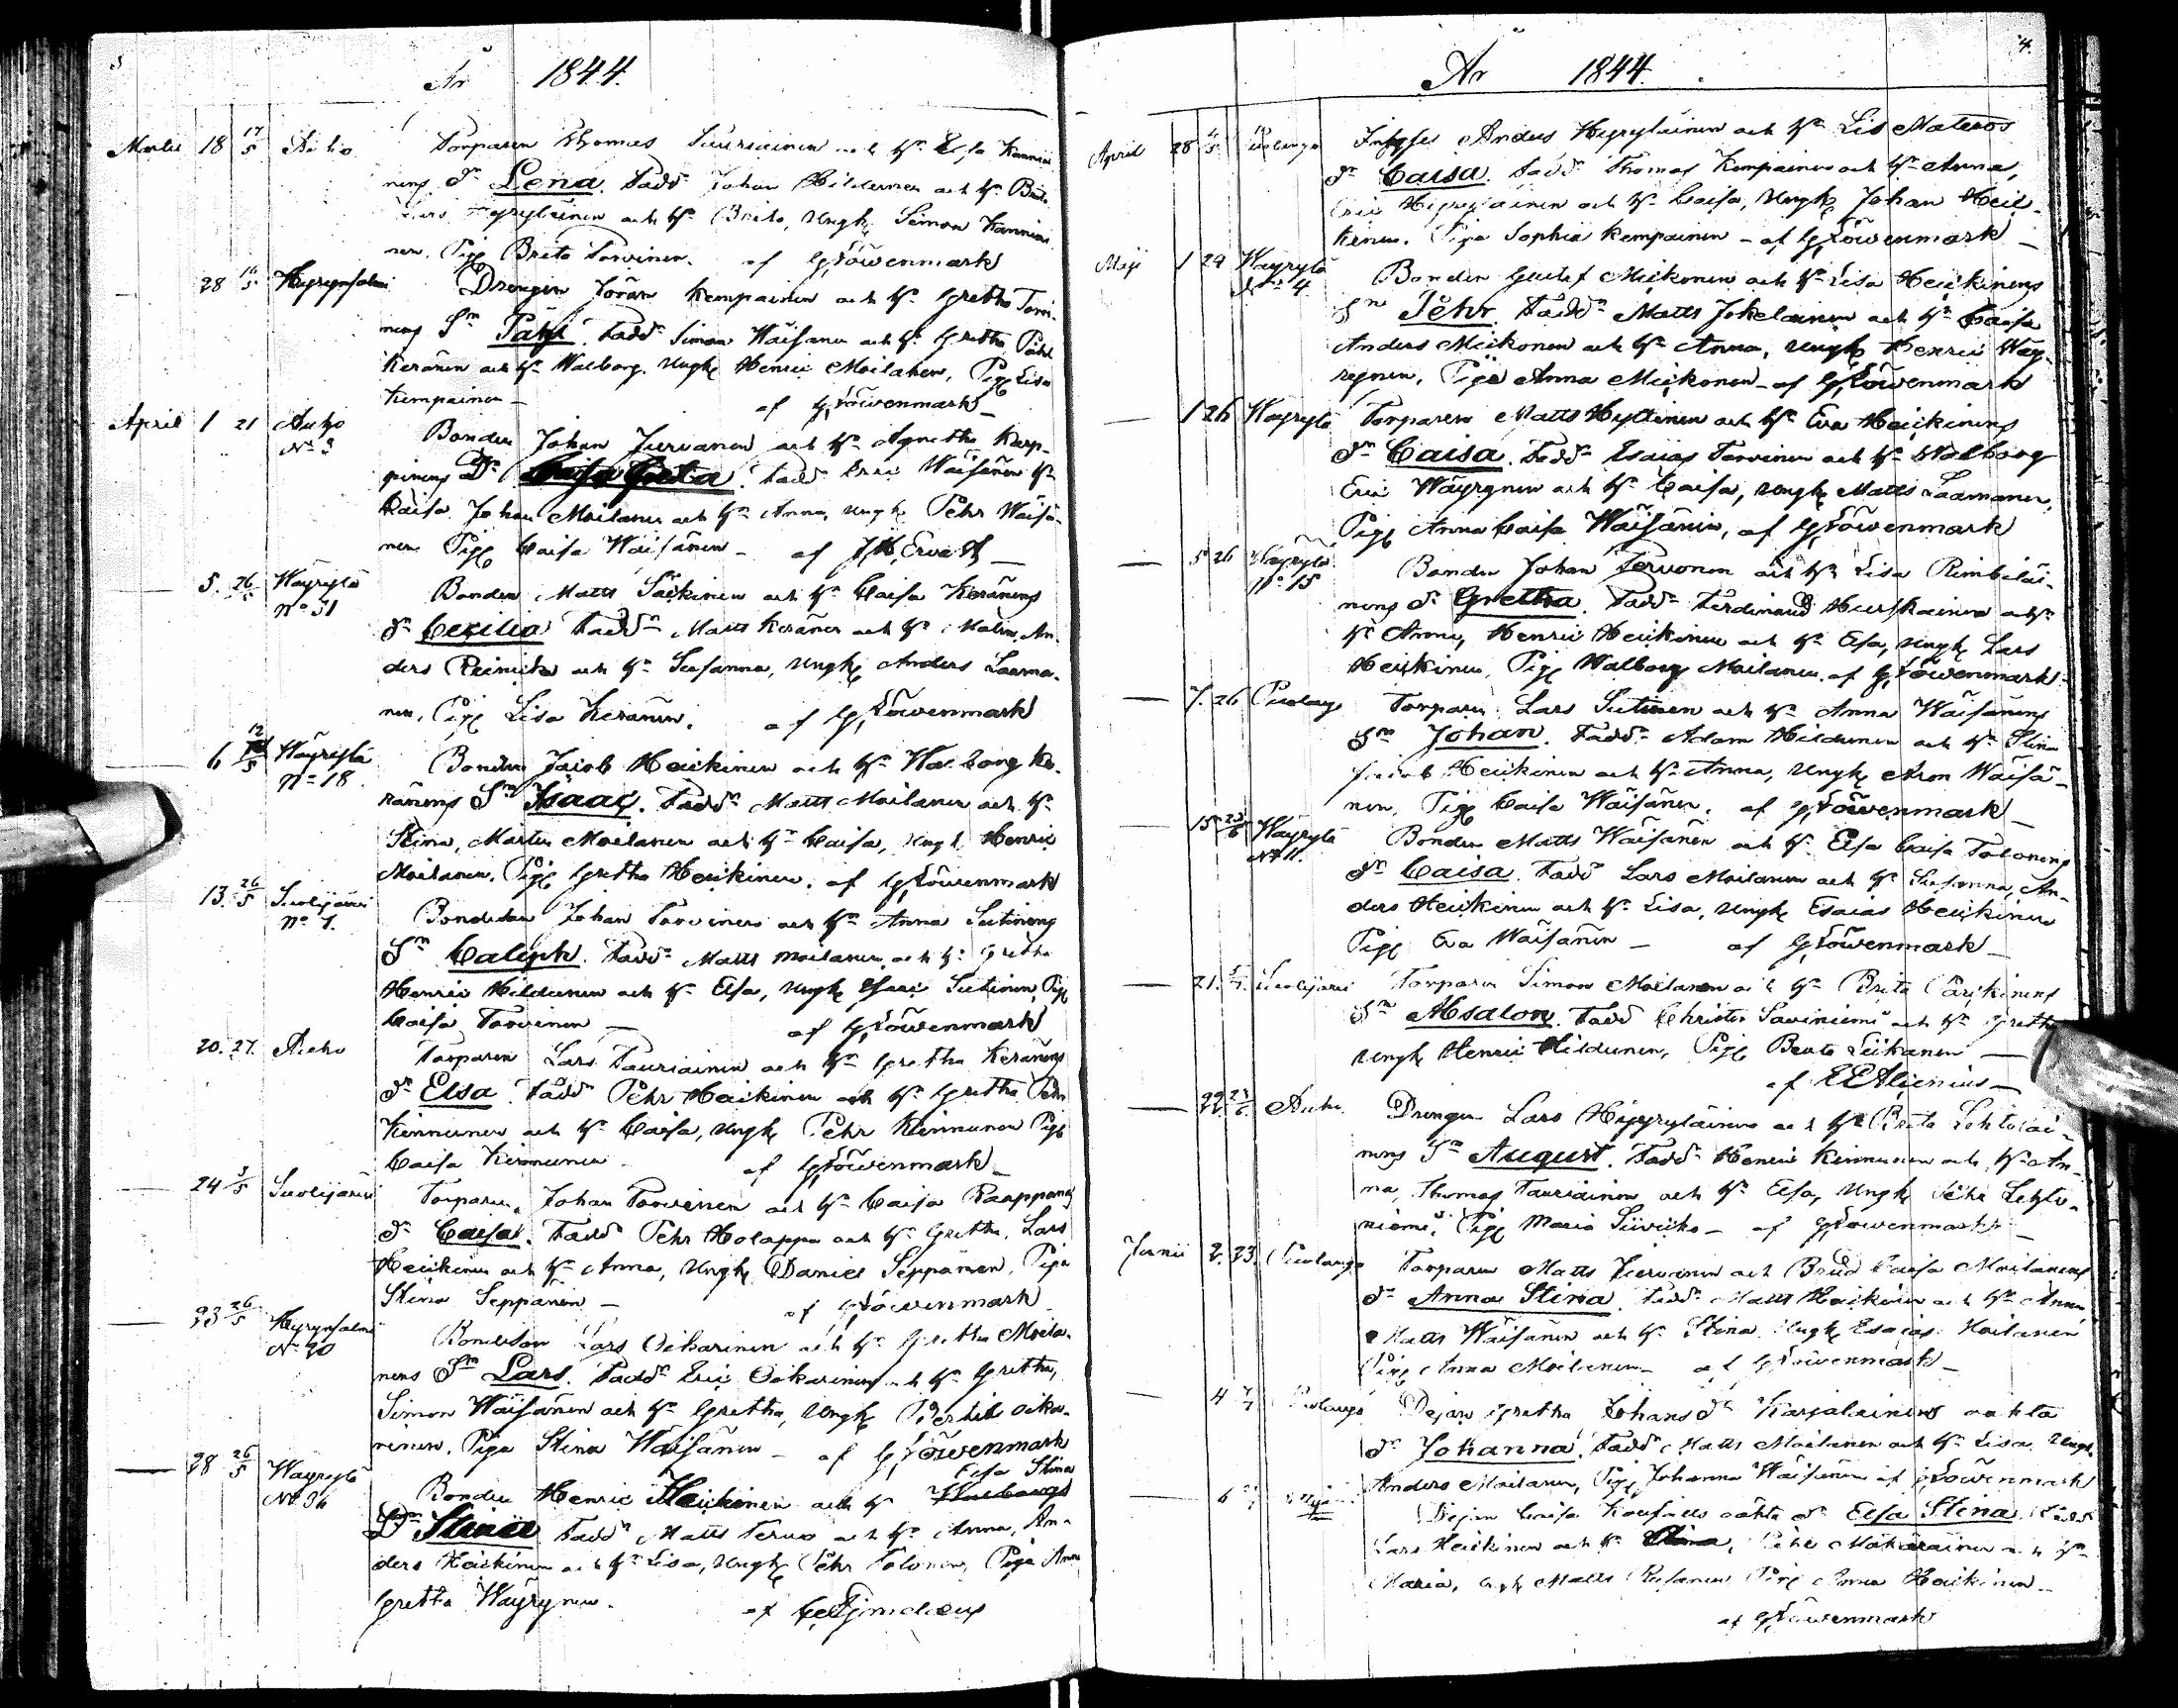 År 1844.
Martii 18 17/5 Auho Torparen Thomas Tauriainen och h:n Elsa Kannia
nens Dr Lena. Fadd:r Johan Hildunen och h:n Brita
Lars Hyryläinen och h:n Brita, Ungk Simon Kanniai
nen, Pig Brita Tarvinen. af G Löwenmark
— 28 Hyrynsalmi Drengen Jöran Kempainen och h:n Gretha Torvi-
nens S:n Påhl. Fadd:r Simon Wäisänen och h:n Gretha Påhl
Keränen och h:n Walborg. Ungk Henric Moilanen, Pig Lisa
Kempainen — af G Löwenmark
April 1 21 Auho
N:o 3
Bonden Johan Jurvanen och h:n Agnetha Karp-
pinens Dr Caisa Greta. Fadd:r Eric Wäisänen h:n
Kaisa Johan Moilanen och h:n Anna, Ungk Pehr Wäisä-
nen Pig Caisa Wäisänen — af J H Ervast
— 5. 26/5 Wäyrylä
N:o 31
Bonden Matts Säkkinen och h:n Caisa Keränens
Dr Cecilia Fadd:r Matts Keränen och h:n Malin, An-
ders Reinikka och h:n Susanna, Ungk Anders Laama-
nen, Pig Lisa Keränen. af G Löwenmark
— 6 12/5 Wäyrylä
N:o 18
Bonden Jacob Heickinen och h:n Walborg Ke-
ränens S:n Isaac. Fadd:r Matts Moilanen och h:n
Stina, Morten Moilanen och h:n Caisa, Ungk Henric
Moilanen, Pig Gretha Heickinen. af G Löwenmark
— 13. 26/5 Suolijärvi
N:o 7.
Bondeson Johan Tarvinen och h:n Anna Sutinens
S:n Caleph. Fadd:r Matts Moilanen och h:n Gretha
Henric Hildunen och h:n Elsa, Ungk Isaac Sutinen, Pig
Caisa Tarvinen — af G Löwenmark
— 20. 27. Auho Torparen Lars Tauriainen och h:n Gretha Keränens
Dr Elsa. Fadd:r Pehr Heickinen och h:n Gretha Pehr
Kinnunen och h:n Caisa, Ungk Pehr Kinnunen Pig
Caisa Kinnunen — af G Löwenmark
— 24 Suolijärvi Torparen Johan Tarvinen och h:n Caisa Raappanas
Dr Caisa. Fadd:r Pehr Holappa och h:n Gretha, Lars
Heickinen och h:n Anna, Ungk Daniel Seppänen, Piga
Stina Seppänen — af G Löwenmark
— 23 26/5 Hyrynsalmi
N:o 20
Bondeson Lars Oikarinen och h:n Gretha Moila-
nens S:n Lars. Fadd:r Eric Oikarinen och h:n Gretha,
Simon Wäisänen och h:n Gretha, Ungk Bertil Oika-
rinen. Piga Stina Wäisänen — af G Löwenmark
— 28 26/5 Wäyrylä
N:o 36
Elsa Stina
Bonden Henric Heickinen och h:n Walborgs
Dr Stina Fadd:r Matts Tervo och h:n Anna, An-
ders Heickinen och h:n Lisa, Ungk Pehr Tolonen, Piga Anna
Gretha Wäyrynen. af
4.
Ar 1844.
April 28 Puolango Inhyses Anders Hyryläinen och h:n Lis Materos
Dr Caisa. Fadd:r Thomas Kempainen och h:n Anna,
Eric Hyryläinen och h:n Caisa, Ungk Johan Heic-
kinen. Piga Sophia Kempainen — af G Löwenmark
Maji 1 24 Wäyrylä
N:o 4
Bonden Gustaf Mickonen och h:n Lisa Heickinens
S:n Pehr. Fadd:r Matts Jokelainen och h:n Caisa
Anders Mickonen och h:n Anna, Ungk Henric Wäy-
rynen, Piga Anna Mickonen — af G Löwenmark
— 1 26 Wäyrylä Torparen Matts Hyttinen och h:n Eva Heickinens
Dr Caisa. Fadd:r Esaias Tarvinen och h:n Walborg
Eric Wäyrynen och h:n Caisa, Ungk Matts Laamanen,
Pig Anna Caisa Wäisänen, af G Löwenmark
— 5 26 Wäyrylä
N:o 15
Bonden Johan Tervonen och h:n Lisa Rimbiläi-
nens Dr Gretha. Fadd:r Ferdinand Hurskainen och
h:n Anna, Henric Heickinen och h:n Elsa, Ungk Lars
Heickinen, Pig Walborg Moilanen. af G Löwenmark
— 7. 26 Puolango Torparen Lars Sutinen och h:n Anna Wäisänens
S:n Johan. Fadd:r Adam Hildunen och h:n Stina
Jacob Heickinen och h:n Anna, Ungk Aron Wäisä-
nen, Pig Caisa Wäisänen. af G Löwenmark
— 15 23/6 Wäyrylä
N:o 11.
Bonden Matts Wäisänen och h:n Elsa Caisa Tolonens
Dr Caisa. Fadd:r Lars Moilanen och h:n Susanna, An-
ders Heickinen och h:n Lisa, Ungk Esaias Heickinen
Pig Eva Wäisänen — af G Löwenmark
— 21. Suolijärvi Torparen Simon Moilanen och h:n Brita Härkinens
S:n Absalon. Fadd:r Christer Saviniemi och h:n Gretha
Ungk Henric Hildunen, Pig Beata Leikanen —
af E E Alcenius
— 22 23/6 Auho Drengen Lars Hyyryläinen och h:n Brita Lehtolai-
nens S:n August. Fadd:r Henric Kinnunen och h:n An-
na, Thomas Tauriainen och h:n Elsa, Ungk Pehr Lehto-
niemi, Pig Maria Siivikko — af G Löwenmark
Junii 2. 23. Puolango Torparen Matts Jurvanen och Brud Caisa Moilanens
Dr Anna Stina. Fadd:r Matts Heickinen och h:n Anna
Matts Wäisänen och h:n Stina Ungk Esaias Moilanen
Pig Anna Moilanen — af G Löwenmark
— 4 Puolango Pejan Gretha Johans Dr Karjalainens oäkta
Dr Johanna. Fadd:r Matts Moilanen och h:n Lisa, Ungk
Anders Moilanen, Pig Johanna Wäisänen af G Löwenmark
— 6 Pejan Caisa oäkta Dr Elsa Stina Fadd:r
Lars Heickinen och h:n Stina, Pehr Mäkäräinen och h:n
Maria, Ungk Matts Pig Anna Heickinen —
af G Löwenmark